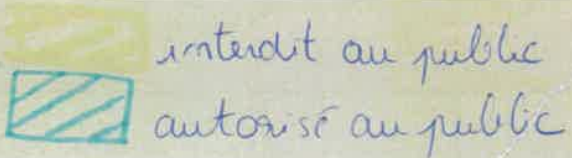 interdit au public
autorisé au public